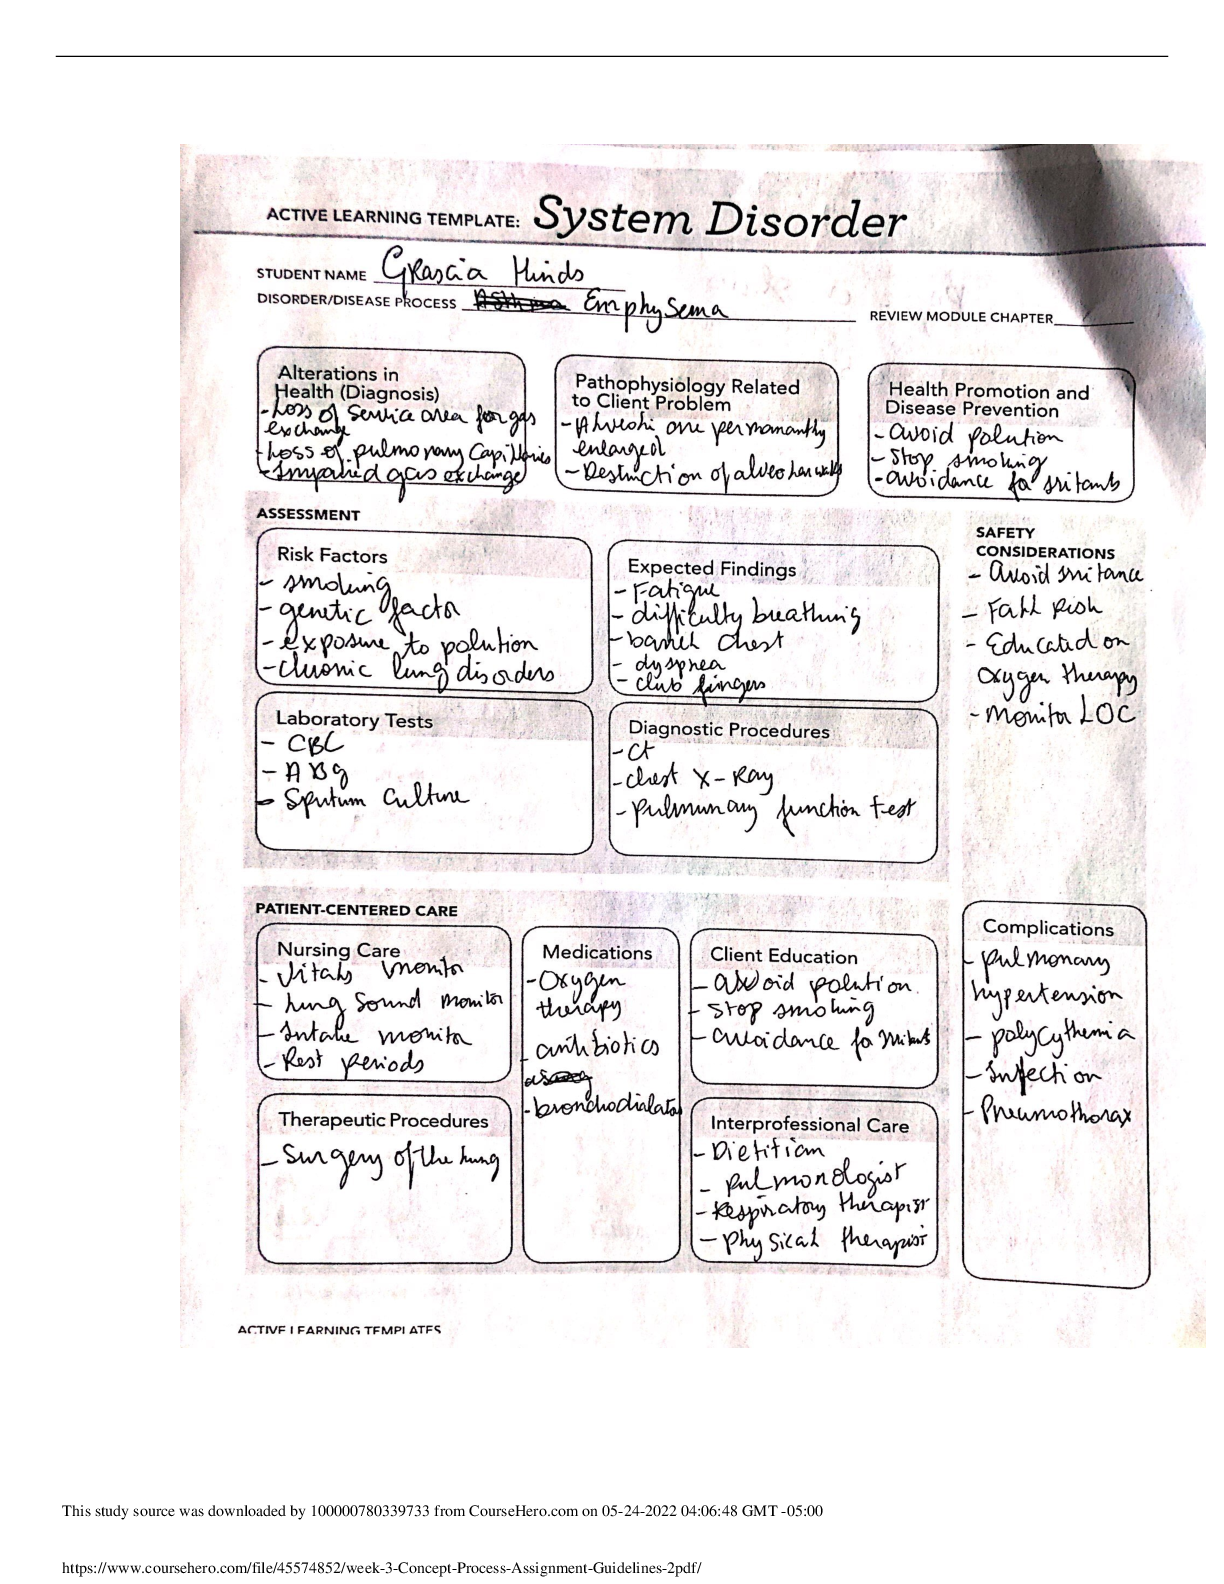 ACTIVE LEARNING TEMPLATE: System Disorder
STUDENT NAME Grascia Hinds
DISORDER/DISEASE PROCESS Emphysema
REVIEW MODULE CHAPTER
Alterations in
Health (Diagnosis)
- Loss of Service area for gas
exchange
- Loss of pulmonary Capillaries
- Impaired gas exchange
Pathophysiology Related
to Client Problem
- Alveohi one permomanthy
enlarged
- Destruction of alveohar walls
Health Promotion and
Disease Prevention
- avoid polution
- Stop smoking
- avoidance fo irritants
ASSESSMENT
Risk Factors
- smoking
- genetic factor
- exposure to polution
- chronic lung disorders
Expected Findings
- Fatigue
- difficulty breathing
- barrel chest
- dyspnea
- club fingers
SAFETY
CONSIDERATIONS
- Avoid irritance
- Fall Risk
- Educated on
oxygen therapy
- Monitor LOC
Laboratory Tests
- CBC
- ABg
- Sputum Culture
Diagnostic Procedures
- Ct
- chest X-Ray
- pulmunary function test
PATIENT-CENTERED CARE
Nursing Care
- Vitals monitor
- lung Sound monitor
- Intake monitor
- Rest periods
Medications
- Oxygen
therapy
- antibiotics
- bronchodialator
Client Education
- avoid polution
- stop smoking
- avoidance fo irritants
Complications
- pulmonary
hypertension
- polycythemia
- Infection
- Pneumothorax
Therapeutic Procedures
- Surgery of the lung
Interprofessional Care
- Dietitian
- pulmonologist
- Respiratory therapist
- physical therapist
ACTIVE LEARNING TEMPLATES
This study source was downloaded by 100000780339733 from CourseHero.com on 05-24-2022 04:06:48 GMT -05:00
https://www.coursehero.com/file/45574852/week-3-Concept-Process-Assignment-Guidelines-2pdf/